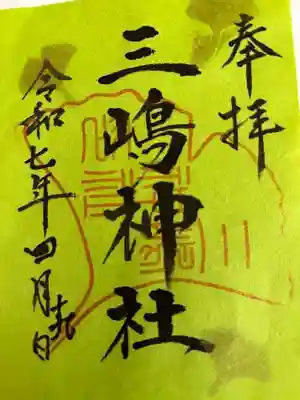 奉拝
三嶋神社
令和七年四月十九日